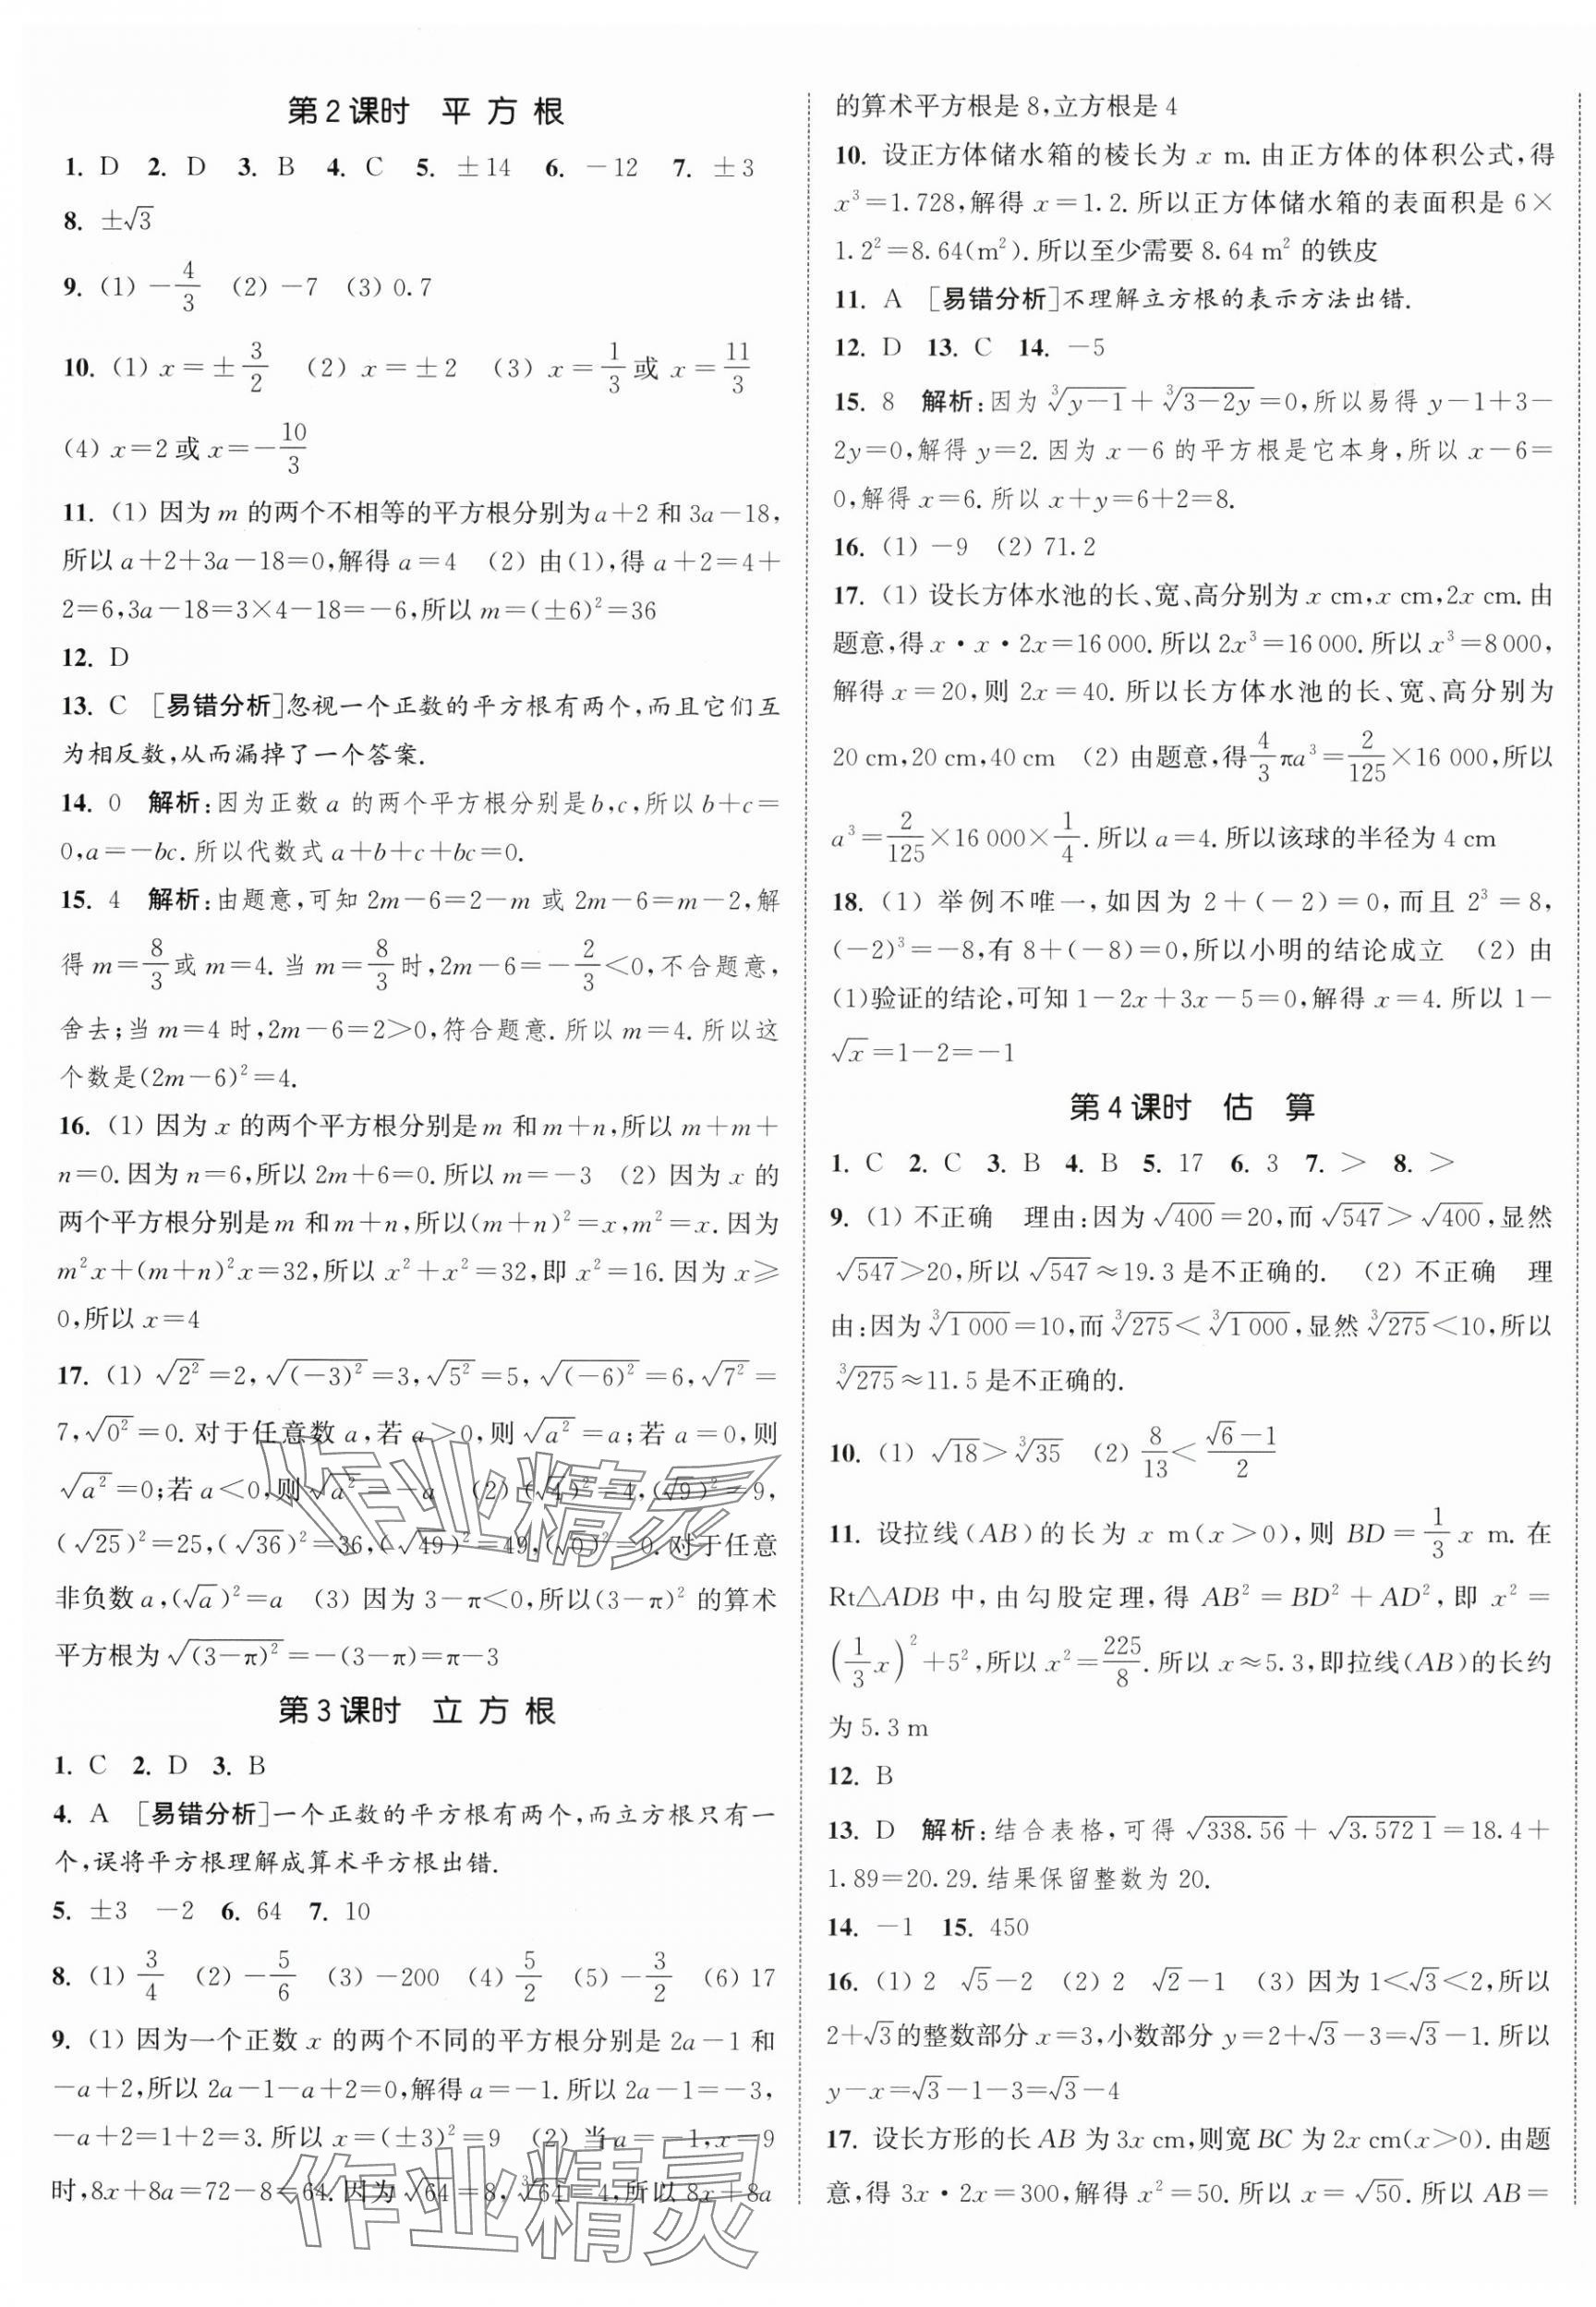 第2课时 平方根
1. D 2. D 3. B 4. C 5. ±14 6. －12 7. ±3
8. ±√3
9. (1) －4/3 (2) －7 (3) 0.7
10. (1) x＝±3/2 (2) x＝±2 (3) x＝1/3或 x＝11/3
(4) x＝2或x＝－10/3
11. (1) 因为m的两个不相等的平方根分别为a＋2和3a－18,
所以a＋2＋3a－18＝0,解得a＝4 (2) 由(1),得a＋2＝4＋
2＝6,3a－18＝3×4－18＝－6,所以m＝(±6)²＝36
12. D
13. C [易错分析]忽视一个正数的平方根有两个,而且它们互
为相反数,从而漏掉了一个答案.
14. 0 解析:因为正数a的两个平方根分别是b,c,所以b＋c＝
0,a＝－bc.所以代数式a＋b＋c＋bc＝0.
15. 4 解析:由题意,可知2m－6＝2－m或2m－6＝m－2,解
得m＝8/3或m＝4.当m＝8/3时,2m－6＝－2/3＜0,不合题意,
舍去;当m＝4时,2m－6＝2＞0,符合题意.所以m＝4.所以这
个数是(2m－6)²＝4.
16. (1) 因为x的两个平方根分别是m和m＋n,所以m＋m＋
n＝0.因为n＝6,所以2m＋6＝0.所以m＝－3 (2) 因为x的
两个平方根分别是m和m＋n,所以(m＋n)²＝x,m²＝x.因为
m²x＋(m＋n)²x＝32,所以x²＋x²＝32,即x²＝16.因为x≥
0,所以x＝4
17. (1) √(2²)＝2,√((－3)²)＝3,√(5²)＝5,√((－6)²)＝6,√(7²)＝
7,√(0²)＝0.对于任意数a,若a＞0,则√(a²)＝a;若a＝0,则
√(a²)＝0;若a＜0,则√(a²)＝－a (2) (√4)²＝4,(√9)²＝9,
(√25)²＝25,(√36)²＝36,(√49)²＝49,(√0)²＝0.对于任意
非负数a,(√a)²＝a (3) 因为3－π＜0,所以(3－π)²的算术
平方根为√((3－π)²)＝－(3－π)＝π－3
第3课时 立方根
1. C 2. D 3. B
4. A [易错分析]一个正数的平方根有两个,而立方根只有一
个,误将平方根理解成算术平方根出错.
5. ±3 －2 6. 64 7. 10
8. (1) 3/4 (2) －5/6 (3) －200 (4) 5/2 (5) －3/2 (6) 17
9. (1) 因为一个正数x的两个不同的平方根分别是2a－1和
－a＋2,所以2a－1－a＋2＝0,解得a＝－1.所以2a－1＝－3,
－a＋2＝1＋2＝3.所以x＝(±3)²＝9 (2) 当a＝－1,x＝9
时,8x＋8a＝72－8＝64.因为√64＝8,∛64＝4,所以8x＋8a
的算术平方根是8,立方根是4
10. 设正方体储水箱的棱长为x m.由正方体的体积公式,得
x³＝1.728,解得x＝1.2.所以正方体储水箱的表面积是6×
1.2²＝8.64(m²).所以至少需要8.64 m²的铁皮
11. A [易错分析]不理解立方根的表示方法出错.
12. D 13. C 14. －5
15. 8 解析:因为∛(y－1)＋∛(3－2y)＝0,所以易得y－1＋3－
2y＝0,解得y＝2.因为x－6的平方根是它本身,所以x－6＝
0,解得x＝6.所以x＋y＝6＋2＝8.
16. (1) －9 (2) 71.2
17. (1) 设长方体水池的长、宽、高分别为x cm,x cm,2x cm.由
题意,得x·x·2x＝16 000.所以2x³＝16 000.所以x³＝8 000,
解得x＝20,则2x＝40.所以长方体水池的长、宽、高分别为
20 cm,20 cm,40 cm (2) 由题意,得4/3πa³＝2/125×16 000,所以
a³＝2/125×16 000×1/4.所以a＝4.所以该球的半径为4 cm
18. (1) 举例不唯一,如因为2＋(－2)＝0,而且2³＝8,
(－2)³＝－8,有8＋(－8)＝0,所以小明的结论成立 (2) 由
(1)验证的结论,可知1－2x＋3x－5＝0,解得x＝4.所以1－
√x＝1－2＝－1
第4课时 估算
1. C 2. C 3. B 4. B 5. 17 6. 3 7. ＞ 8. ＞
9. (1) 不正确 理由:因为√400＝20,而√547＞√400,显然
√547＞20,所以√547≈19.3是不正确的. (2) 不正确 理
由:因为∛1 000＝10,而∛275＜∛1 000,显然∛275＜10,所以
∛275≈11.5是不正确的.
10. (1) √18＞∛35 (2) 8/13＜(√6－1)/2
11. 设拉线(AB)的长为x m(x＞0),则BD＝1/3x m.在
Rt△ADB中,由勾股定理,得AB²＝BD²＋AD²,即x²＝
(1/3x)²＋5²,所以x²＝225/8.所以x≈5.3,即拉线(AB)的长约
为5.3 m
12. B
13. D 解析:结合表格,可得√338.56＋√3.572 1＝18.4＋
1.89＝20.29.结果保留整数为20.
14. －1 15. 450
16. (1) 2 √5－2 (2) 2 √2－1 (3) 因为1＜√3＜2,所以
2＋√3的整数部分x＝3,小数部分y＝2＋√3－3＝√3－1.所以
y－x＝√3－1－3＝√3－4
17. 设长方形的长AB为3x cm,则宽BC为2x cm(x＞0).由题
意,得3x·2x＝300,解得x²＝50.所以x＝√50.所以AB＝
作业精灵
作业精灵